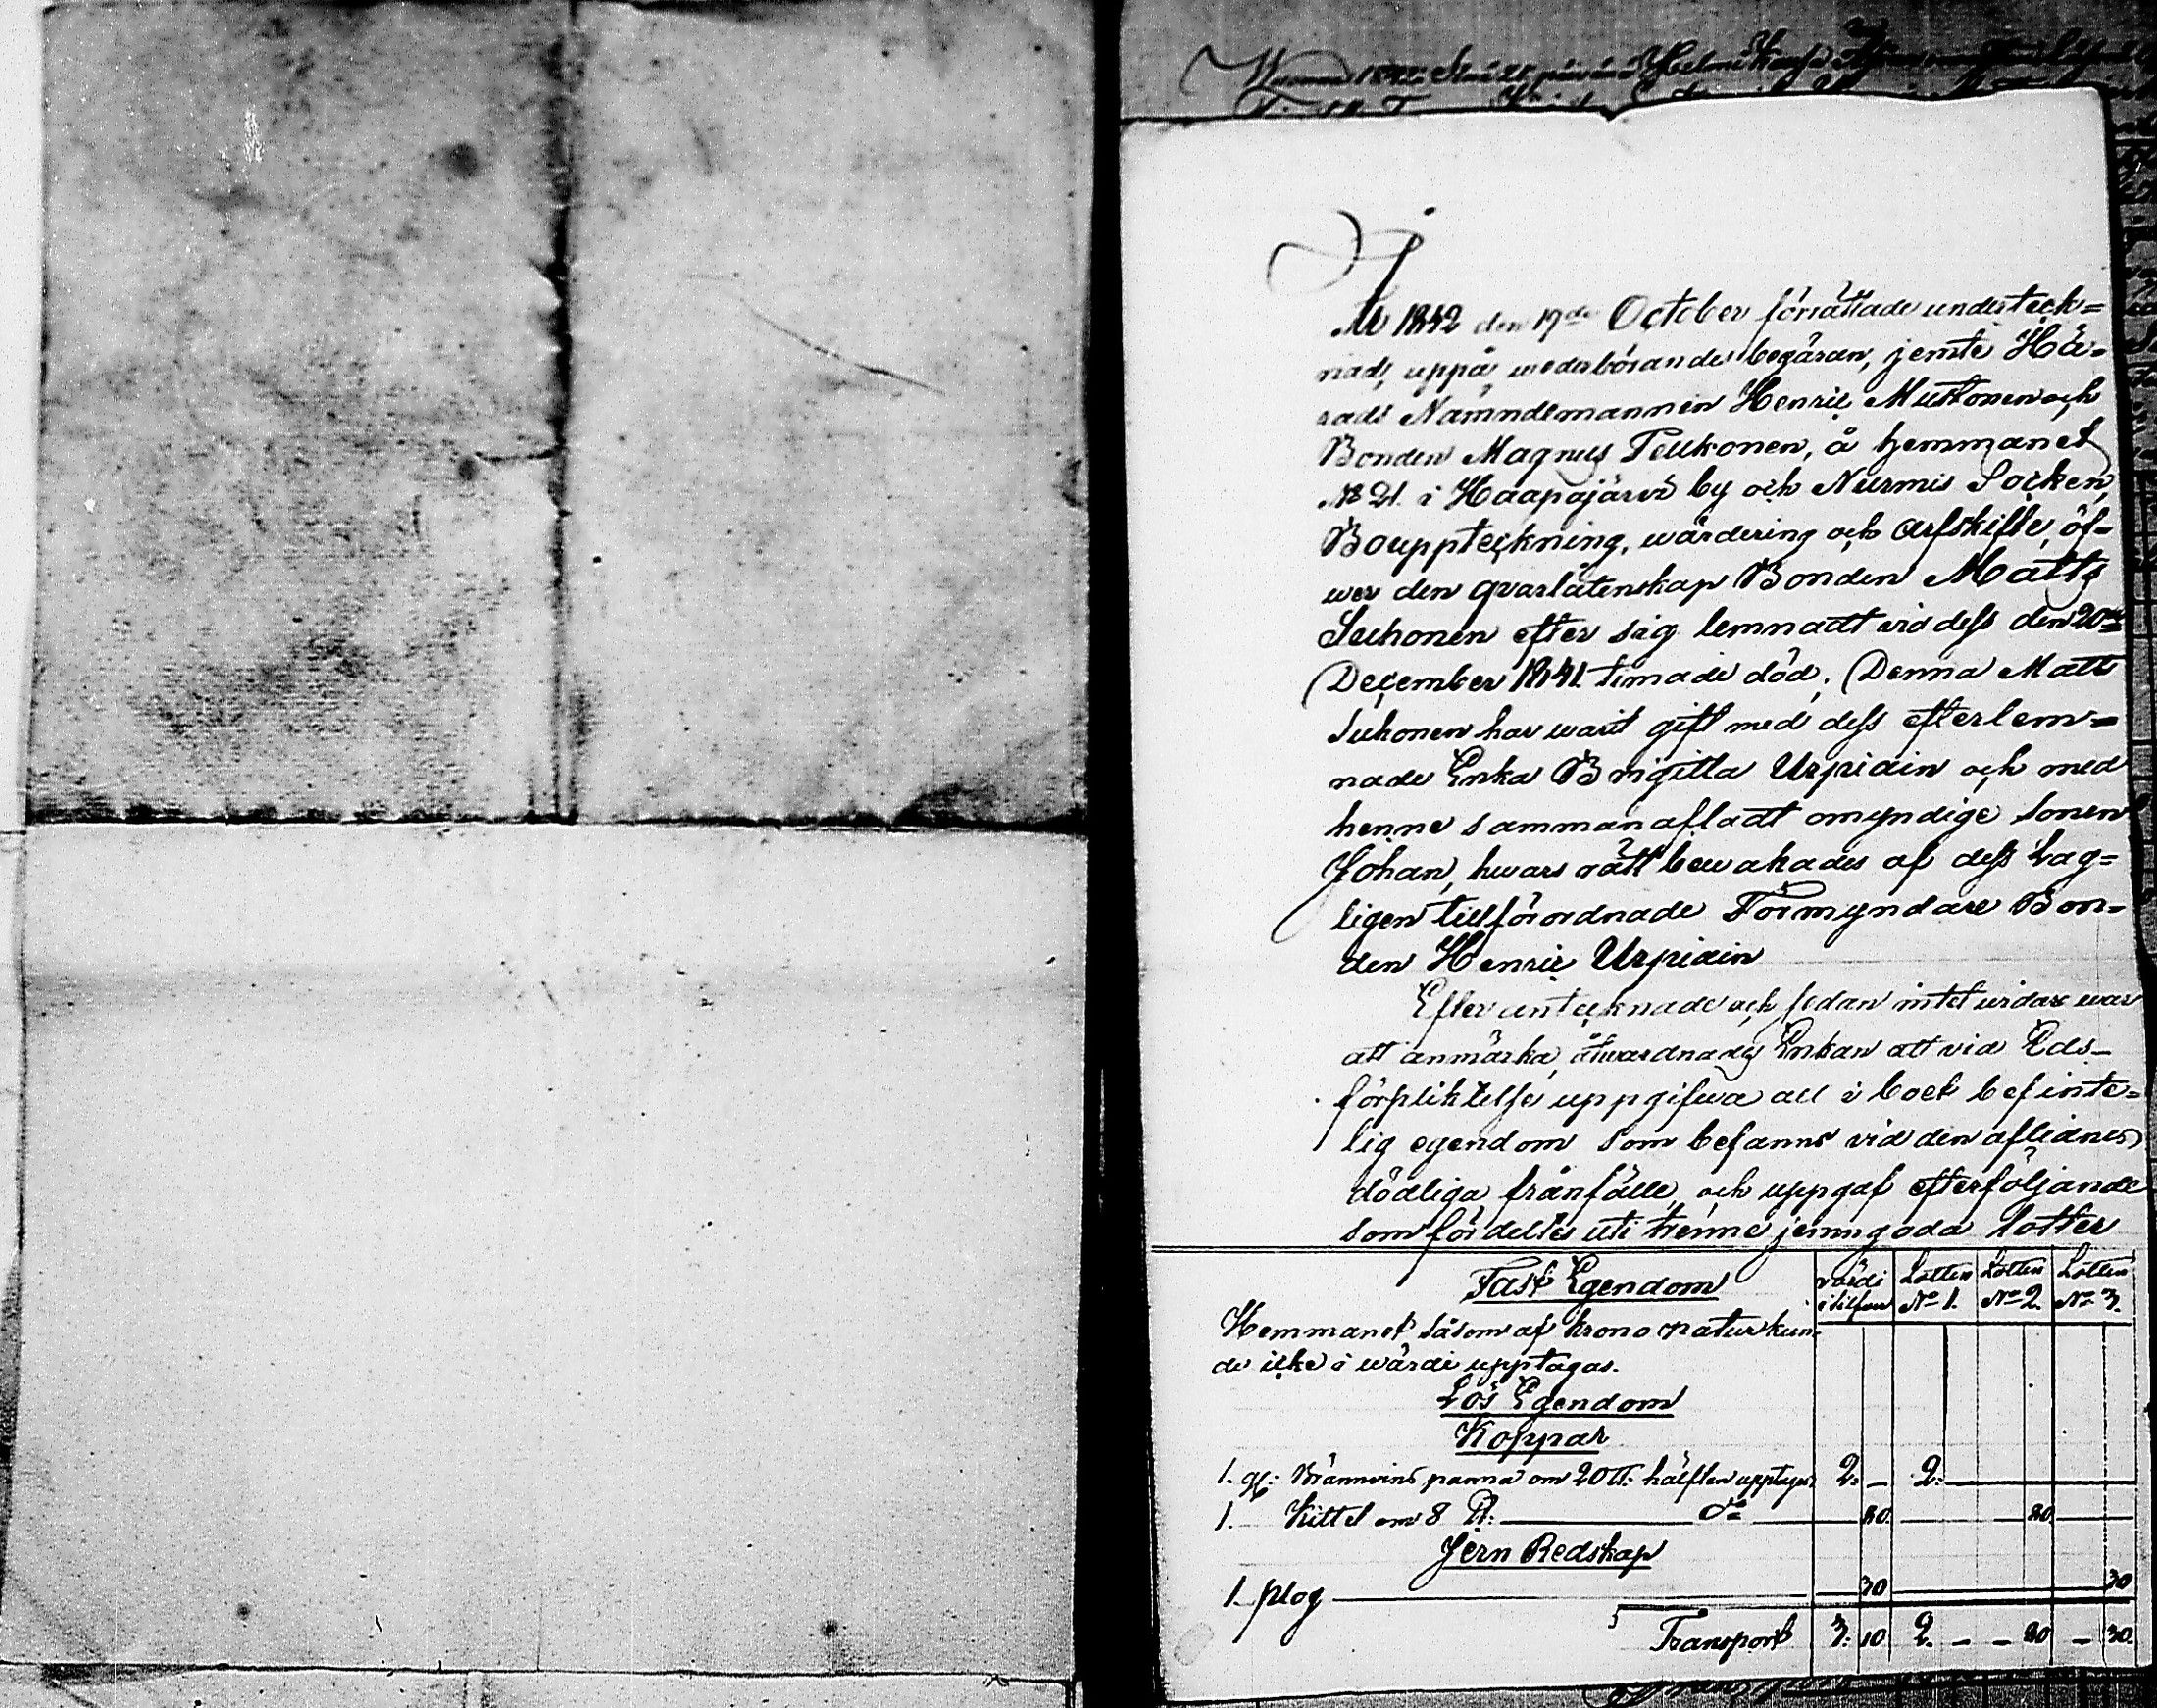 År 1842 den 17de October förrättade underteck=
nad, uppå wederbörandes begäran, jemte Hä=
rads Nämndemannen Henric Mustonen och
Bonden Magnus Teukonen, å hemmanet
No 21. i Haapajärvi by och Nurmis Socken,
Bouppteckning, wärdering och arfskifte, öf=
wer den qvarlåtenskap Bonden Matts
Suhonen efter sig lemnadt vid dess den 20de
December 1841. timade död. Denna Matts
Suhonen har warit gift med dess efterlem=
nade Enka Brigitta Urpiain och med
henne sammanafladt omyndige sonen
Johan, hwars rätt bewakades af dess Lag=
ligen tillförordnade Förmyndare Bon=
den Henric Urpiain
Efter antecknade och sedan intet widare war
att anmärka, Enkan att vid Eds-
förpliktelse uppgifwa all i boet befinte=
lig egendom som befanns vid den aflidnes
dödliga frånfälle, och uppgaf efterföljande
som fördeltes uti trenne jemngoda lotter
Fast Egendom värdi i silfver Lotten No 1. Lotten No 2. Lotten No 3.
Hemmanet såsom af krono natur kun=
de icke i wärde upptagas.
Lös Egendom
Koppar
1. gl: Brännvins panna om 20 ℔: hälften upptages 2. – 2.
1. Kittel om 8 ℔: do 80. 80.
Jern Redskap
1. plog 30 30
Transport 3. 10 2. – – 80 – 30.